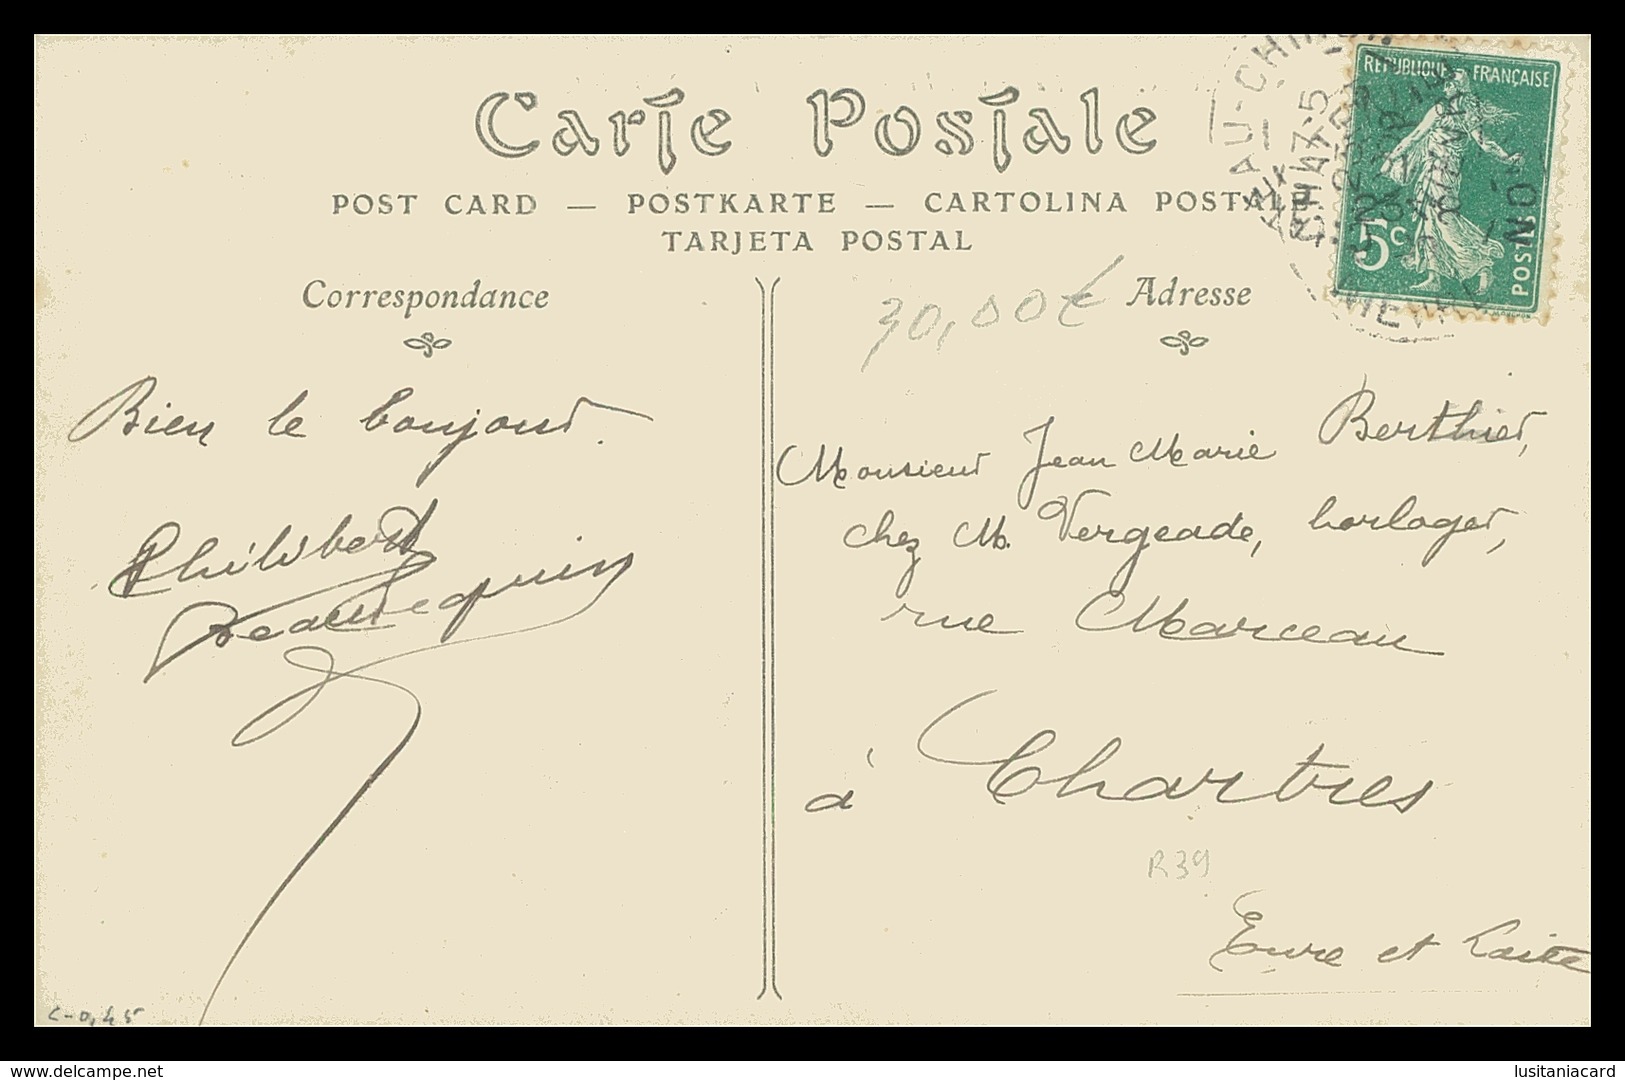 Carte Postale
POST CARD — POSTKARTE — CARTOLINA POSTALE
TARJETA POSTAL
REPUBLIQUE FRANÇAISE
5c
POSTES
Correspondance
Adresse
30,00€
Bien le bonjour.
Philibert
Monsieur Jean Marie Berthier,
chez M. Vergeade, horloger,
rue Marceau
à Chartres
R39
Eure et Loire
c-0,45
www.delcampe.net
lusitaniacard